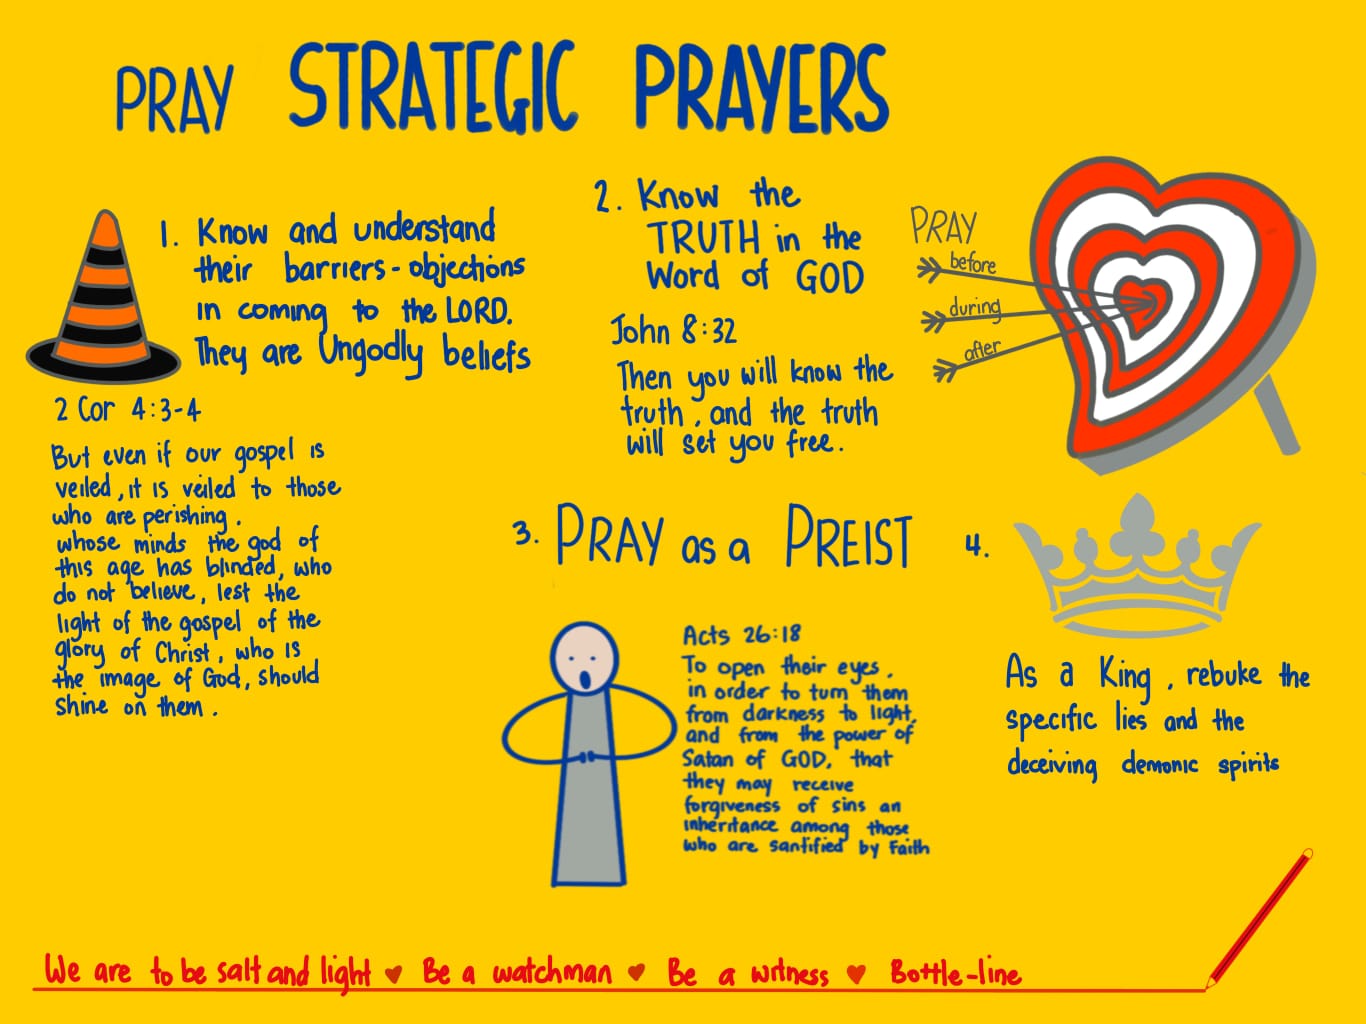 PRAY STRATEGIC PRAYERS
1. Know and understand
their barriers-objections
in coming to the LORD.
They are Ungodly beliefs
2 Cor 4:3-4
But even if our gospel is
veiled, it is veiled to those
who are perishing.
whose minds the god of
this age has blinded, who
do not believe, lest the
light of the gospel of the
glory of Christ, who is
the image of God, should
shine on them.
2. Know the
TRUTH in the
Word of GOD
John 8:32
Then you will know the
truth, and the truth
will set you free.
PRAY
before
during
after
3. PRAY as a PREIST
Acts 26:18
To open their eyes,
in order to turn them
from darkness to light,
and from the power of
Satan of GOD, that
they may receive
forgiveness of sins an
inheritance among those
who are santified by Faith
4.
As a King, rebuke the
specific lies and the
deceiving demonic spirits
We are to be salt and light ♥ Be a watchman ♥ Be a witness ♥ Bottle-line